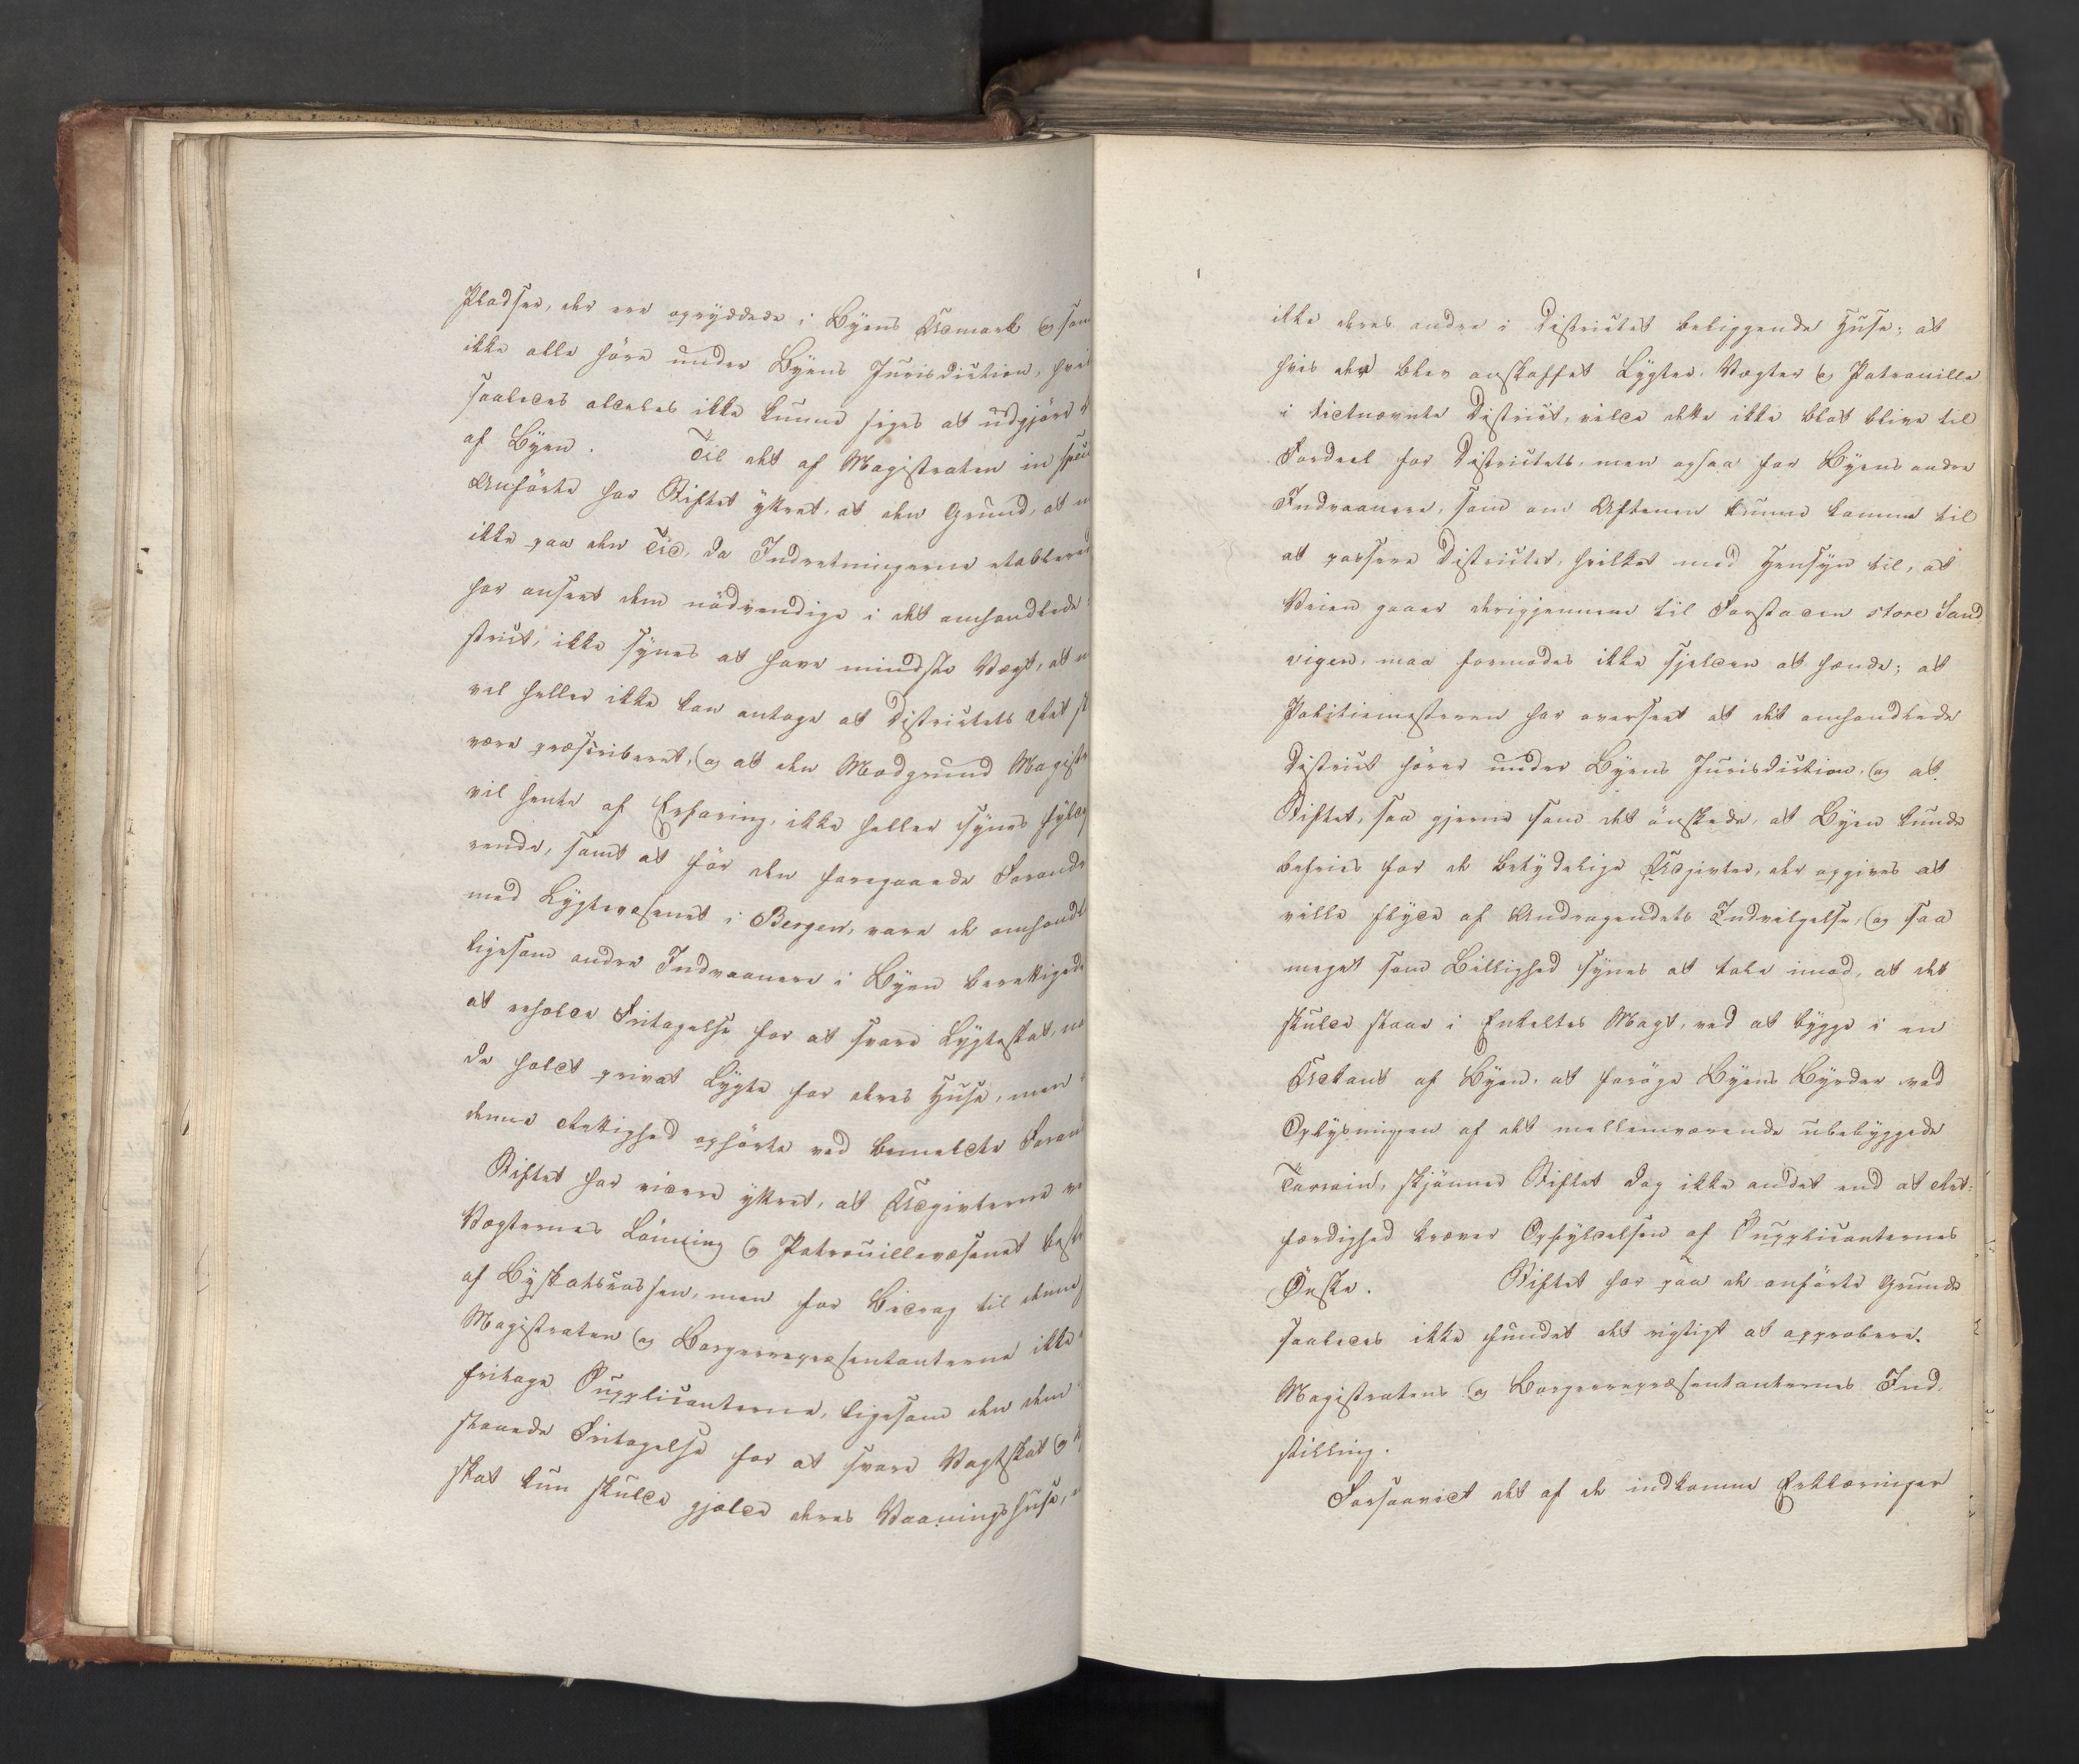 Pladser, der ere opryddede i Byens Udmark og som
ikke alle høre under Byens Jurisdiction, hvil
saaledes aldeles ikke kunne siges at udgjøre
af Byen. Til det af Magistraten in
Anførte har Stiftet yttret, at den Grund, at
ikke paa den Tid, da Indretningerne etablered
har anseet dem nødvendige i det omhandlede
strict, ikke synes at have mindste Vægt, at
vel heller ikke kan antage at Districtets Ret
være præscriberet, og at den Modgrund Magist
vil hente af Erfaring, ikke heller synes fyld
rende, samt at før den foregaaede Forandr
med Lygtevæsenet i Bergen, vare de omhandl
ligesom andre Indvaanere i Byen berettigede
at erholde Fritagelse for at svare Lygteskat, na
de holdt privat Lygte for deres Huse, men
denne Rettighed ophørte ved bemeldte Foran
Stiftet har videre yttret, at Udgifterne
Vægternes Lønning og Patrouillevæsenet
af Byskatscassen, men for Bidrag til denne
Magistraten og Borgerrepræsentanterne ikke
fritage Supplicanterne, ligesom den dem
staaede Fritagelse for at svare Vagtskat og
skat kun skulde gjælde deres Vaaningshuse,
ikke deres andre i Districtet beliggende Huse; at
hvis der blev anskaffet Lygter, Vægter og Patrouille
i bietnævnte District, vilde dette ikke blot blive til
Fordeel for Districtets, men ogsaa for Byens andre
Indvaanere, som om Aftenen kunne komme til
at passere Districtet, hvilket med Hensyn til, at
Veien gaaer derigjennem til Forstaden store Sand
vigen, maa formodes ikke sjelden at hænde; at
Politiemesteren har overseet at det omhandlede
District hører under Byens Jurisdiction, og at
Stiftet, saa gjerne som det ønskede, at Byen kunde
befries for de betydelige Udgifter, der opgives at
ville flyde af Andragendets Indvilgelse, og saa
meget som Billighed synes at tale imod, at det
skulde staae i Enkeltes Magt, ved at bygge i en
Udkant af Byen, at forøge Byens Byrder ved
Oplysningen af det mellemværende ubebyggede
Terrain, skjønner Stiftet dog ikke andet end at Ret-
færdighed kræver Opfyldelsen af Supplicanternes
Ønske. Stiftet har paa de anførte Grunde
saaledes ikke fundet det rigtigt at approbere
Magistratens og Borgerrepræsentanternes Ind-
stilling.
Forsaavidt det af de indkomne Erklæringer